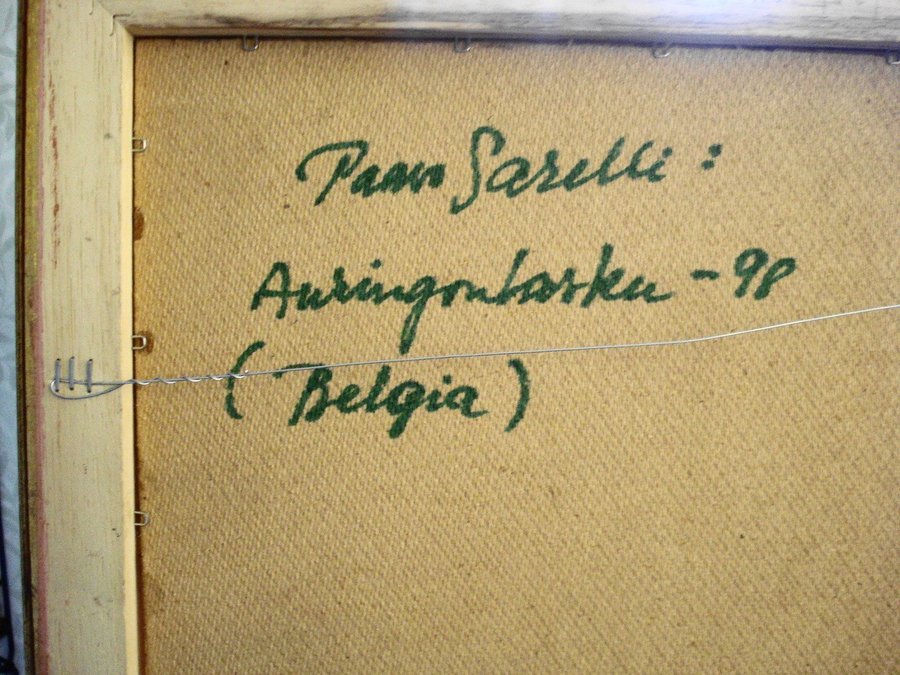 Paavo Sarelli:
Auringonlasku - 98
(Belgia)